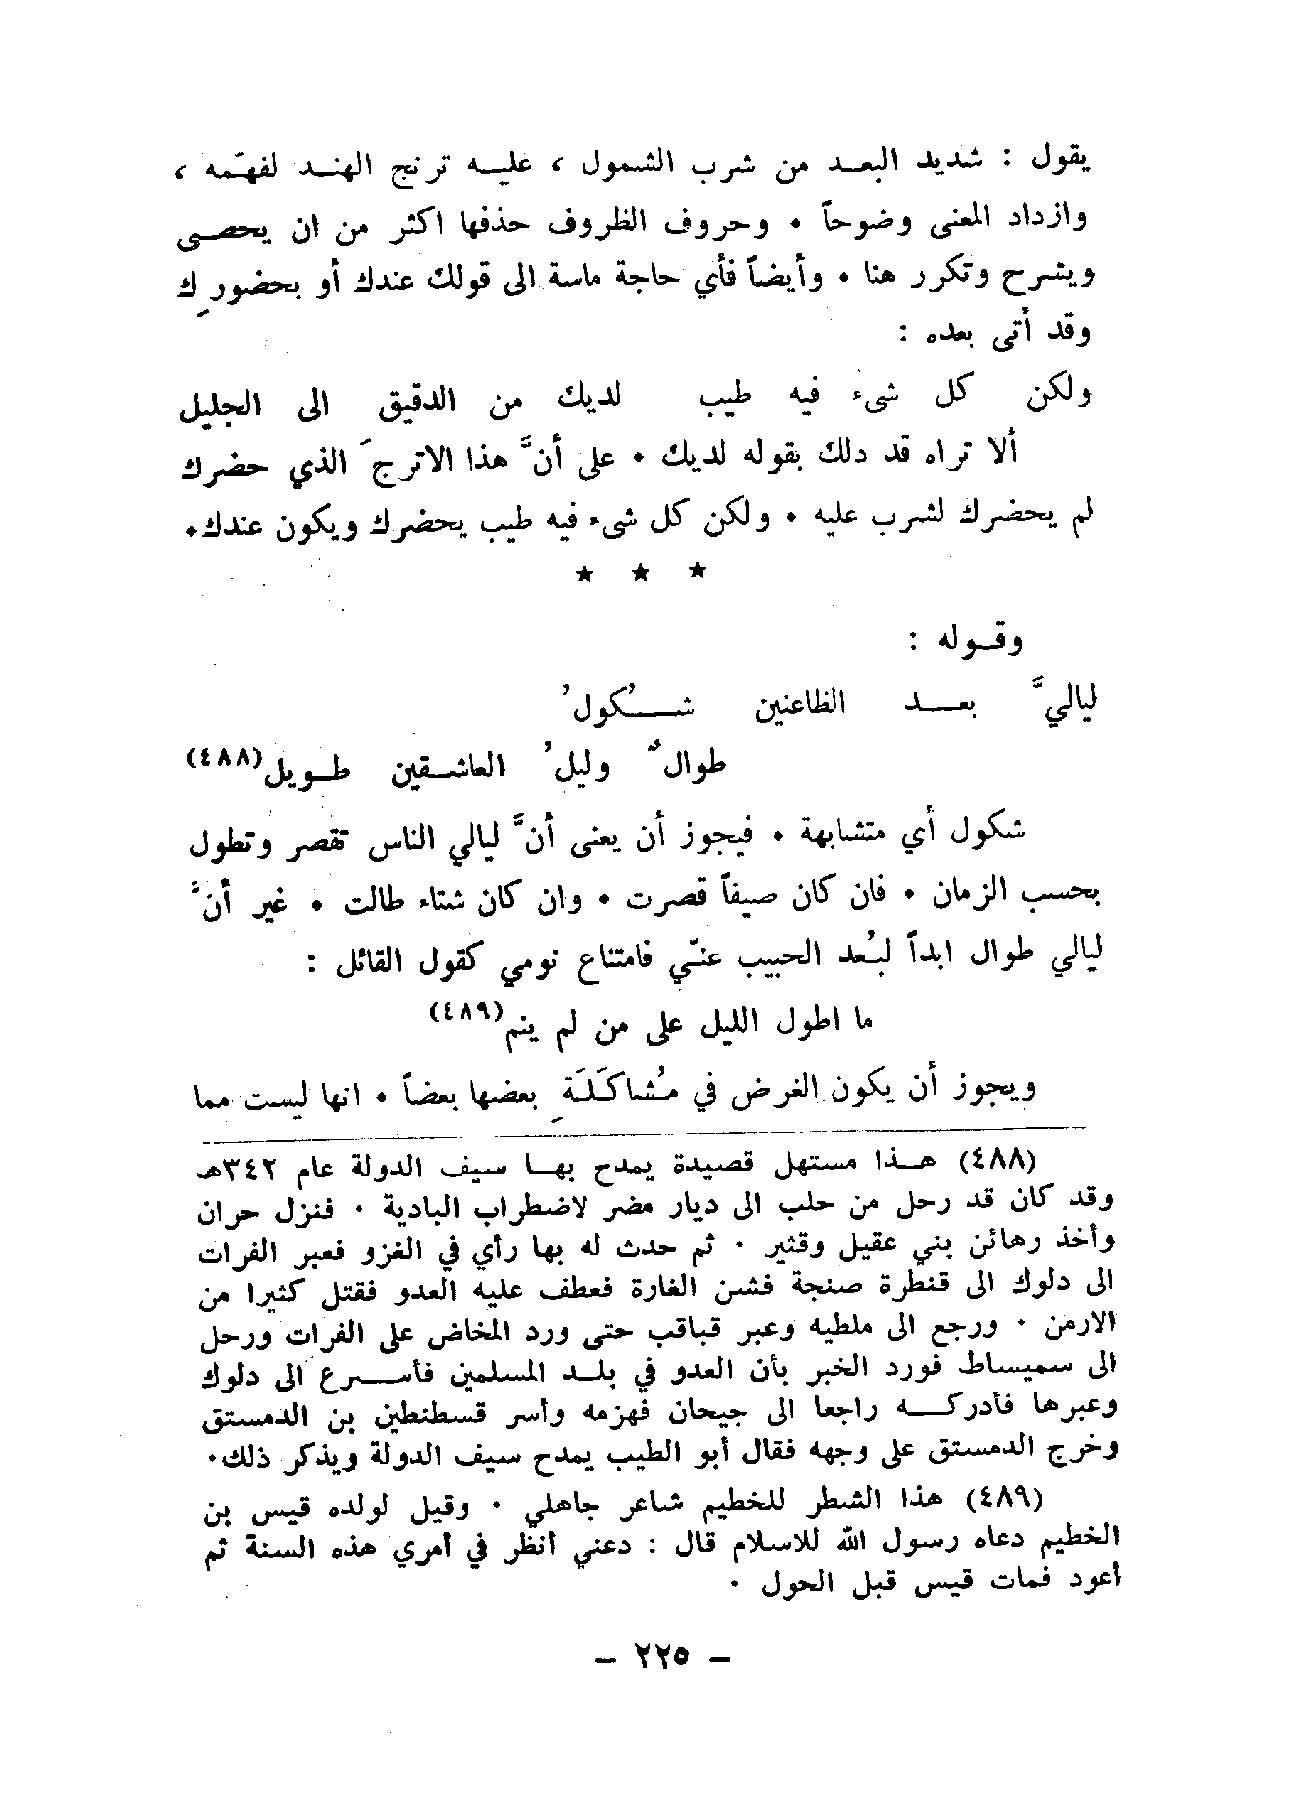 يقول : شديد البعـد من شرب الشمول ، عليـه ترنج الهنـد لفهّمه ،
وازداد المعنى وضوحاً • وحروف الظروف حذفها اكثر من ان يحصـى
ويشرح وتكرر هنا • وأيضاً فأي حاجة ماسة الى قولك عندك أو بحضورِك
وقد أتى بعده :
ولكن كل شىء فيه طيب لديك من الدقيق الى الجليل
ألا تراه قد دلك بقوله لديك • على أنَّ هذا الاترجَ الذي حضرك
لم يحضرك لشرب عليه • ولكن كل شىء فيه طيب يحضرك ويكون عندك•
★ ★ ★
وقـوله :
ليالـيَّ بعـــد الظاعنين شـــُكولُ
طوالٌ وليلُ العاشـقين طـويل(٤٨٨)
شكول أي متشابهة • فيجوز أن يعنى أنَّ ليالي الناس تقصر وتطول
بحسب الزمان • فان كان صيفاً قصرت • وان كان شتاء طالت • غير أنَّ
ليالي طوال ابداً لبُعد الحبيب عنّي فامتناع نومي كقول القائل :
ما اطول الليل على من لم ينم(٤٨٩)
ويجوز أن يكون الغرض في مُشاكَلَةِ بعضها بعضاً • انها ليست مما
(٤٨٨) هـذا مستهل قصيدة يمدح بهـا سيف الدولة عام ٣٤٢هـ
وقد كان قد رحل من حلب الى ديار مضر لاضطراب البادية • فنزل حران
وأخذ رهائن بني عقيل وقثير • ثم حدث له بها رأي في الغزو فعبر الفرات
الى دلوك الى قنطرة صنجة فشن الغارة فعطف عليه العدو فقتل كثيرا من
الارمن • ورجع الى ملطيه وعبر قباقب حتى ورد المخاض على الفرات ورحل
الى سميساط فورد الخبر بأن العدو في بلـد المسلمين فأسـرع الى دلوك
وعبرها فأدركـــه راجعا الى جيحان فهزمه وأسر قسطنطين بن الدمستق
وخرج الدمستق على وجهه فقال أبو الطيب يمدح سيف الدولة ويذكر ذلك•
(٤٨٩) هذا الشطر للخطيم شاعر جاهلي • وقيل لولده قيس بن
الخطيم دعاه رسول الله للاسلام قال : دعني أنظر في أمري هذه السنة ثم
أعود فمات قيس قبل الحول •
– ٢٢٥ –